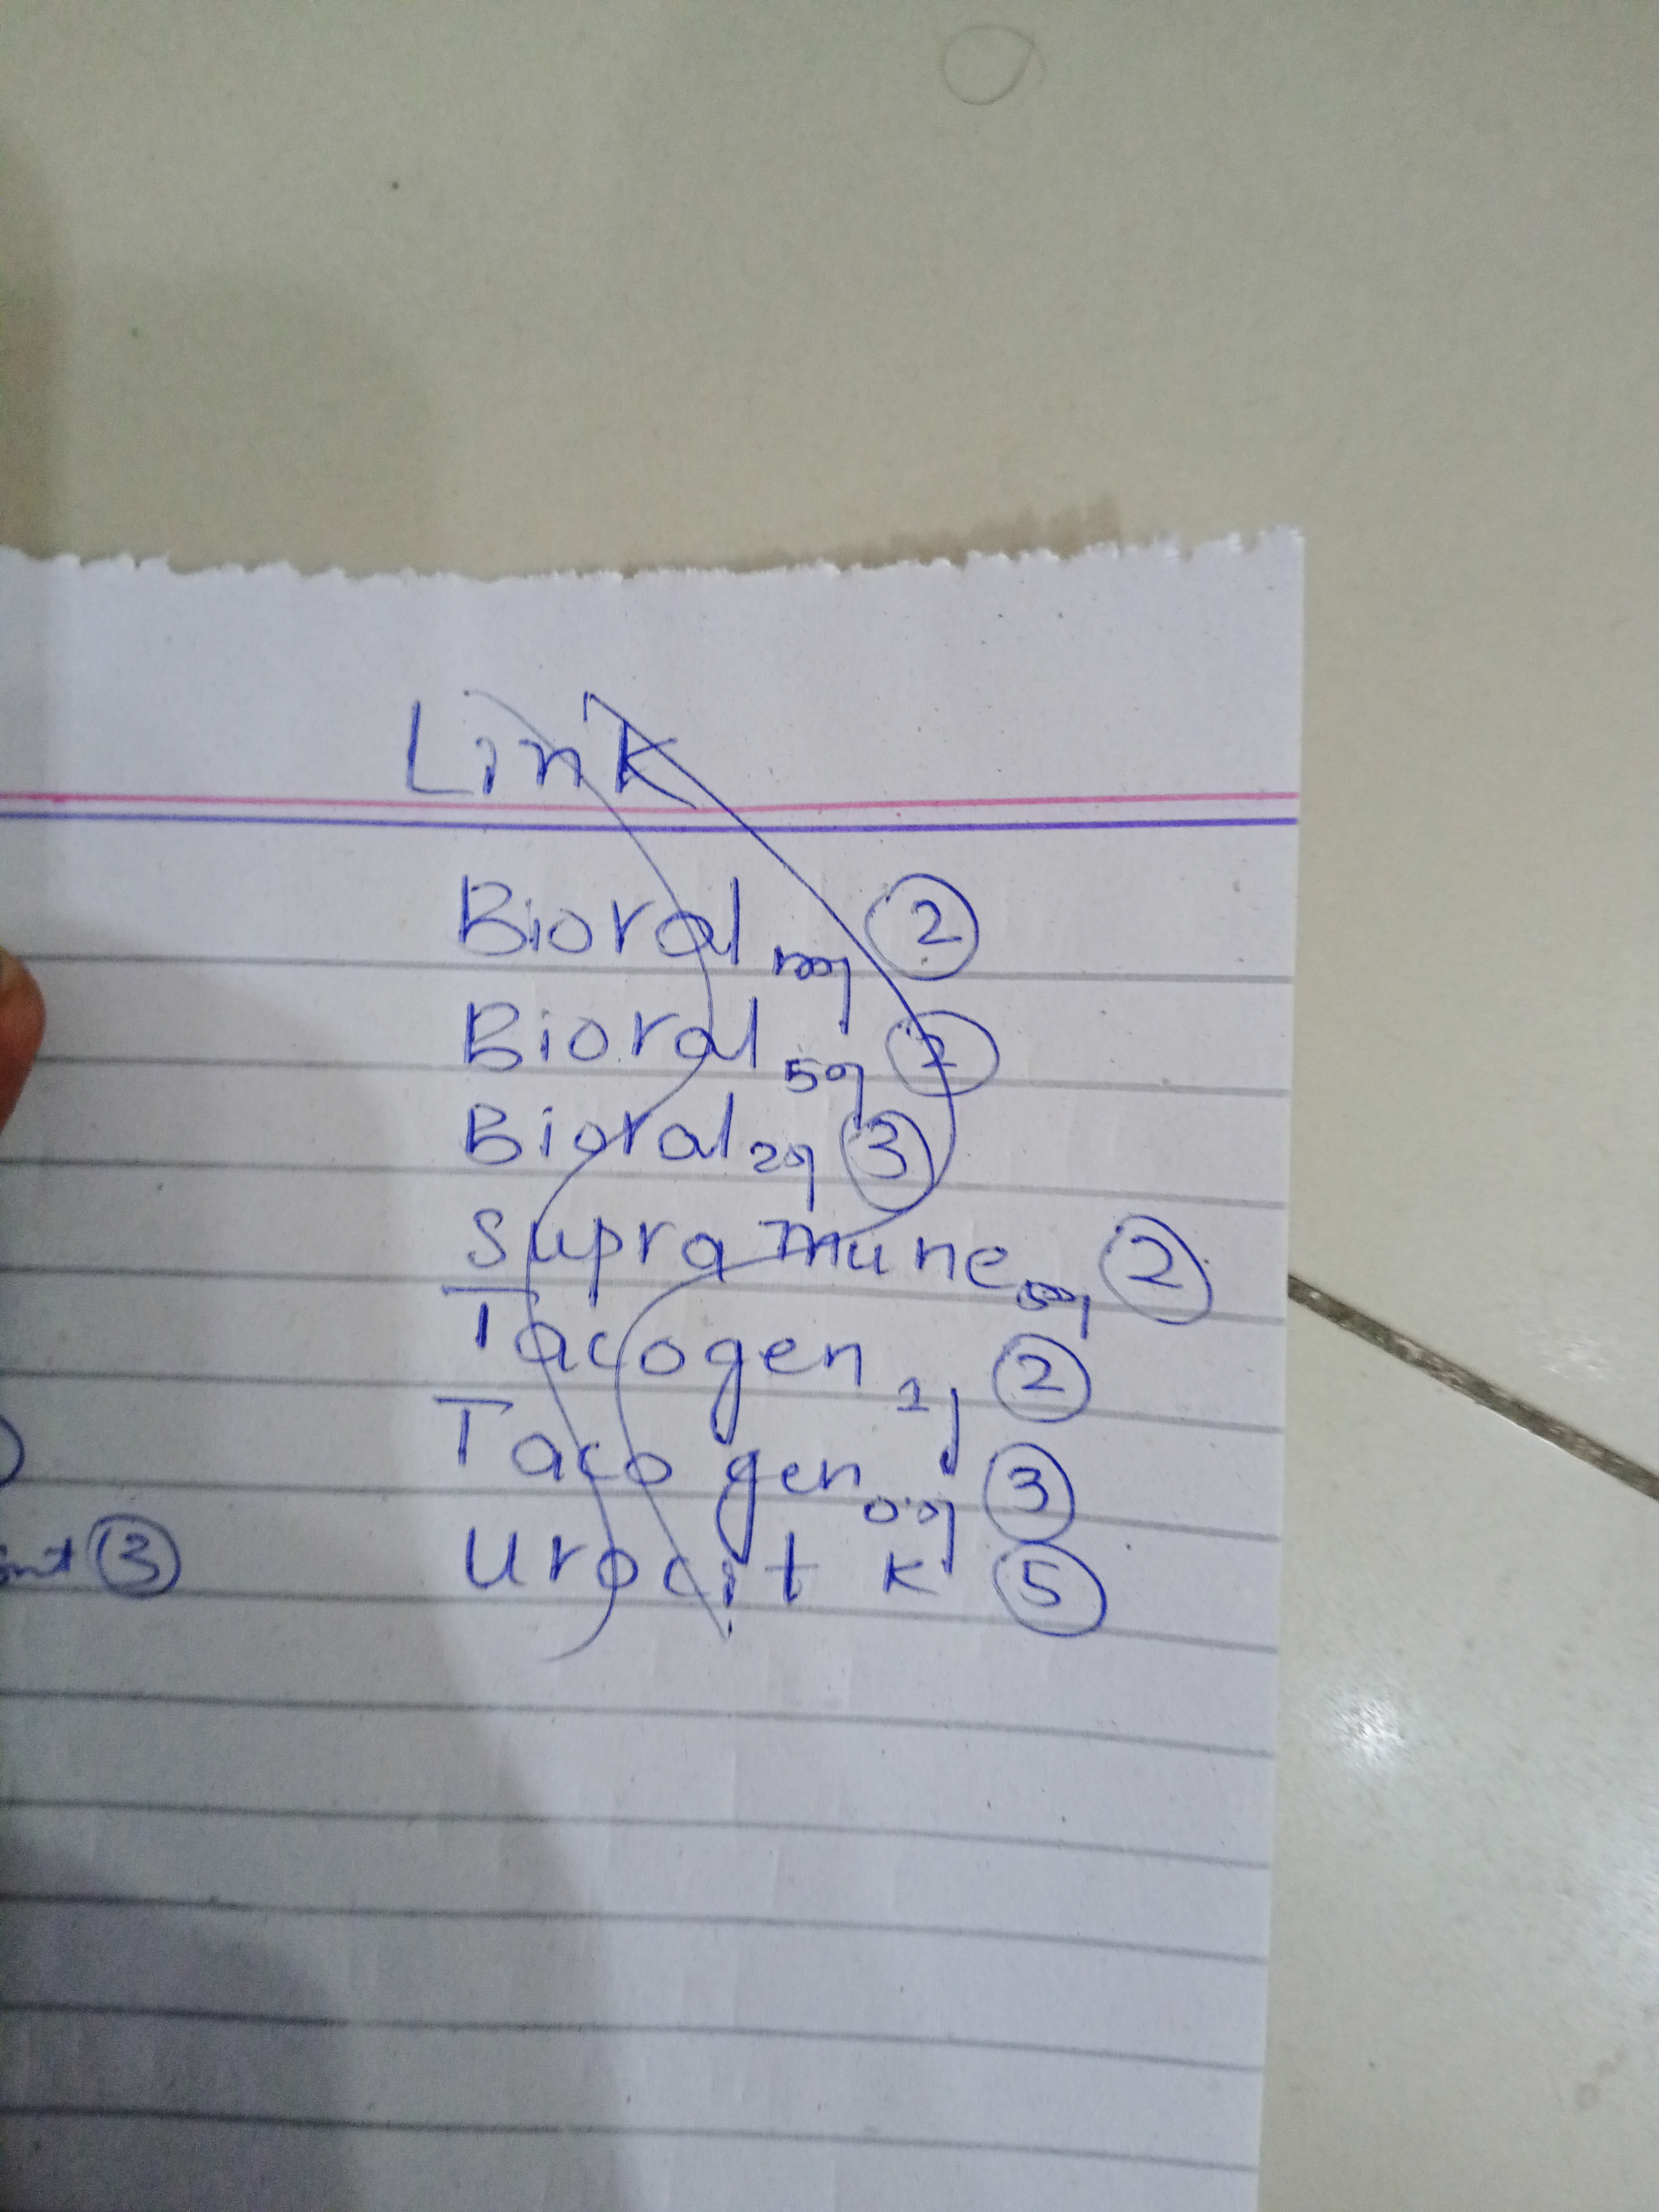 Link
Bioral 100g 2
Bioral 50g 2
Bioral 25g 3
Supra mune 50g 2
Tacogen 1g 2
Taco gen 0.5g 3
Urocit K 5
3